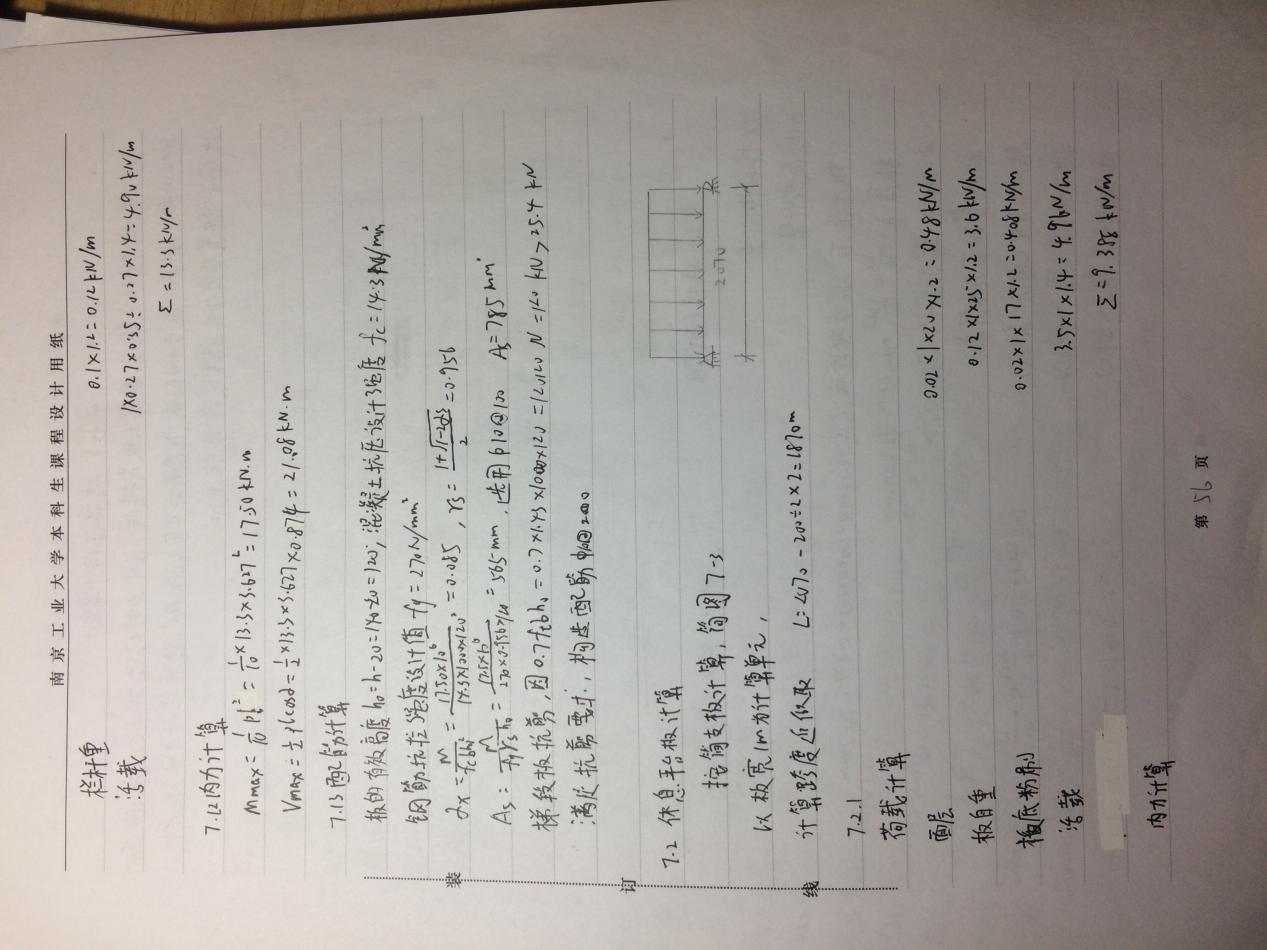 南京工业大学本科生课程设计用纸
栏杆重 0.1×1.2=0.12kN/m
活载 1×0.27×0.35÷0.27×1.4=4.90kN/m
Σ=13.3kN/m
7.1.2内力计算
Mmax=1/10 pl²=1/10×13.3×3.627²=17.50kN.m
Vmax=1/2 plcosα=1/2×13.3×3.627×0.874=21.08kN.m
7.1.3配筋计算
板的有效高度h₀=h-20=140-20=120,混凝土抗压设计强度fc=14.3N/mm²
钢筋抗拉强度设计值fy=270N/mm²
αs=M/fcbh₀²=17.50×10⁶/14.3×1000×120²=0.085,γs=(1+√1-2αs)/2=0.956
As=M/fyγsh₀=17.5×10⁶/270×0.956×120=565mm,选用φ10@100 As=785mm²
梯段板抗剪,因0.7ftbh₀=0.7×1.43×1000×120=120120N=120kN>25.4kN
满足抗剪要求,构造配筋φ10@200
7.2休息平台板计算
按简支板计算,简图7-3
以板宽1m为计算单元,
计算跨度近似取 L=2070-200÷2×2=1870m
2070
7.2.1
荷载计算
面层 0.02×1×20×1.2=0.48kN/m
板自重 0.12×1×25×1.2=3.6kN/m
板底粉刷 0.02×1×17×1.2=0.408kN/m
活载 3.5×1×1.4=4.9kN/m
Σ=9.388kN/m
内力计算
第56页
装
订
线